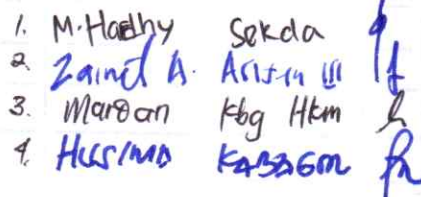 1. M. Hadhy Sekda
2. Zainal A. Asisten III
3. Marwan Kbg Hkm
4. Husima